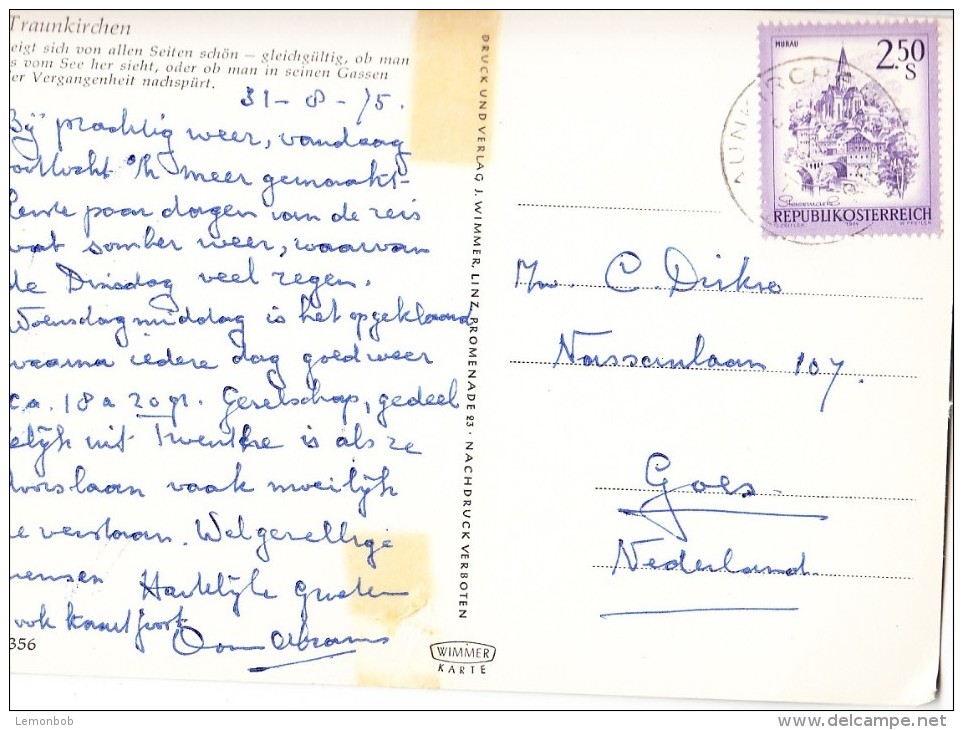 Traunkirchen
eigt sich von allen Seiten schön – gleichgültig, ob man
s vom See her sieht, oder ob man in seinen Gassen
er Vergangenheit nachspürt.
31-8-75.
Bij prachtig weer, vandaag
meer gemaakt-
paar dagen van de reis
wat somber weer, waarvan
de Dinsdag veel regen.
Woensdagmiddag is het opgeklaard
waarna iedere dag goed weer
ca. 18 a 20 gr. Gezelschap, gedeel
elijk uit Twenthe is als ze
vaak moeilijk
te verstaan. Wel gezellige
mensen Hartelijke Groeten
ook
356
DRUCK UND VERLAG J. WIMMER, LINZ, PROMENADE 23 · NACHDRUCK VERBOTEN
WIMMER
KARTE
MURAU
2.50
S
Steiermark
REPUBLIK ÖSTERREICH
AUNKIRCH
C. Dirkse
Nassaulaan 107.
Goes
Nederland
Lemonbob
delcampe.net